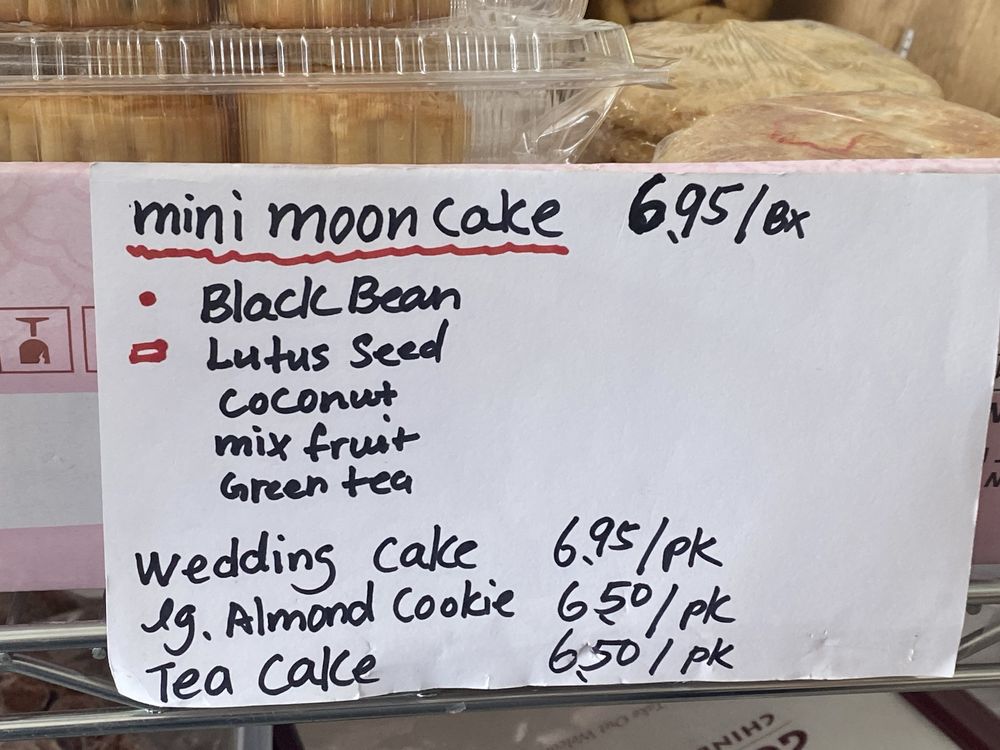 mini moon cake 6.95/Bx
Black Bean
Lutus Seed
coconut
mix fruit
Green tea
Wedding Cake 6.95/pk
lg. Almond Cookie 6.50/pk
Tea Cake 6.50/pk
CHINE